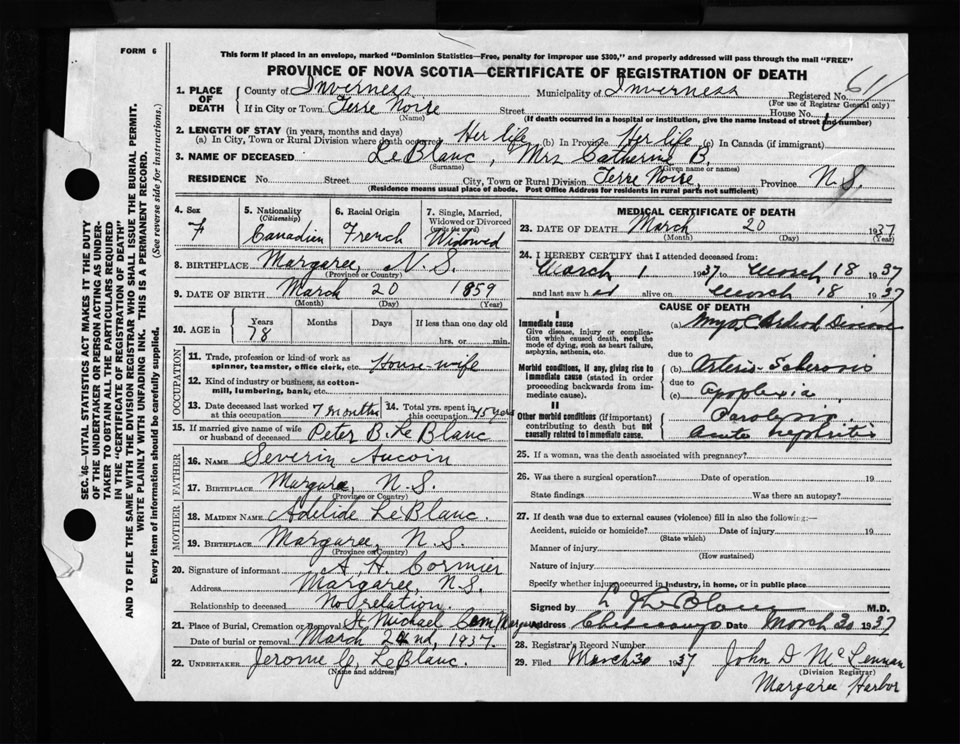 FORM 6
This form if placed in an envelope, marked "Dominion Statistics—Free, penalty for improper use $300," and properly addressed will pass through the mail "FREE"
PROVINCE OF NOVA SCOTIA—CERTIFICATE OF REGISTRATION OF DEATH
1. PLACE OF DEATH
County of Inverness Municipality of Inverness Registered No. 611
(For use of Registrar General only)
If in City or Town Terre Noire Street House No.
(Name) (If death occurred in a hospital or institution, give the name instead of street and number)
2. LENGTH OF STAY (in years, months and days)
(a) In City, Town or Rural Division where death occurred Her life (b) In Province Her life (c) In Canada (if immigrant)
3. NAME OF DECEASED LeBlanc, Mrs Catherine B.
(Surname) (Given name or names)
RESIDENCE No. Street City, Town or Rural Division Terre Noire, Province N.S.
(Residence means usual place of abode. Post Office Address for Residents in rural parts not sufficient)
4. Sex F
5. Nationality (Citizenship) Canadian
6. Racial Origin French
7. Single, Married, Widowed or Divorced (write the word) Widowed
8. BIRTHPLACE Margaree, N.S.
(Province or Country)
9. DATE OF BIRTH March 20 1859
(Month) (Day) (Year)
10. AGE in Years 78 Months Days If less than one day old hrs. or min.
OCCUPATION
11. Trade, profession or kind of work as spinner, teamster, office clerk, etc. House-wife
12. Kind of industry or business, as cotton-mill, lumbering, bank, etc.
13. Date deceased last worked at this occupation 7 months
14. Total yrs. spent in this occupation 45 years
15. If married give name of wife or husband of deceased Peter B. LeBlanc
FATHER
16. NAME Severin Aucoin
17. BIRTHPLACE Margaree, N.S.
(Province or Country)
MOTHER
18. MAIDEN NAME Adelide LeBlanc.
19. BIRTHPLACE Margaree, N.S.
(Province or Country)
20. Signature of informant A. H. Cormier
Address Margaree, N.S.
Relationship to deceased No relation.
21. Place of Burial, Cremation or Removal St. Michael Cem Margaree
Date of burial or removal March 22nd, 1937.
22. UNDERTAKER Jerome G. LeBlanc.
(Name and address)
MEDICAL CERTIFICATE OF DEATH
23. DATE OF DEATH March 20 1937
(Month) (Day) (Year)
24. I HEREBY CERTIFY that I attended deceased from:
March 1 1937 to March 18 1937
and last saw her alive on March 18 1937
CAUSE OF DEATH
I
Immediate cause
Give disease, injury or complication which caused death, not the mode of dying, such as heart failure, asphyxia, asthenia, etc.
(a)
due to
Morbid conditions, if any, giving rise to immediate cause (stated in order proceeding backwards from immediate cause).
(b) Arterio-Sclerosis
due to
(c) Apoplexia
II
Other morbid conditions (if important) contributing to death but not causally related to immediate cause.
Paralysis
Acute nephritis
25. If a woman, was the death associated with pregnancy?
26. Was there a surgical operation? Date of operation 19
State findings Was there an autopsy?
27. If death was due to external causes (violence) fill in also the following:—
Accident, suicide or homicide? Date of injury 19
(State which)
Manner of injury
(How sustained)
Nature of injury
Specify whether injury occurred in industry, in home, or in public place
Signed by L J LeBlanc M.D.
Address Cheticamp Date March 20 1937
28. Registrar's Record Number
29. Filed March 30 1937 John D McLennan
(Division Registrar)
Margaree Harbor
SEC. 46—VITAL STATISTICS ACT MAKES IT THE DUTY
OF THE UNDERTAKER OR PERSON ACTING AS UNDER-
TAKER TO OBTAIN ALL THE PARTICULARS REQUIRED
IN THE "CERTIFICATE OF REGISTRATION OF DEATH"
AND TO FILE THE SAME WITH THE DIVISION REGISTRAR WHO SHALL ISSUE THE BURIAL PERMIT.
WRITE PLAINLY WITH UNFADING INK. THIS IS A PERMANENT RECORD.
Every item of information should be carefully supplied. (See reverse side for instructions.)